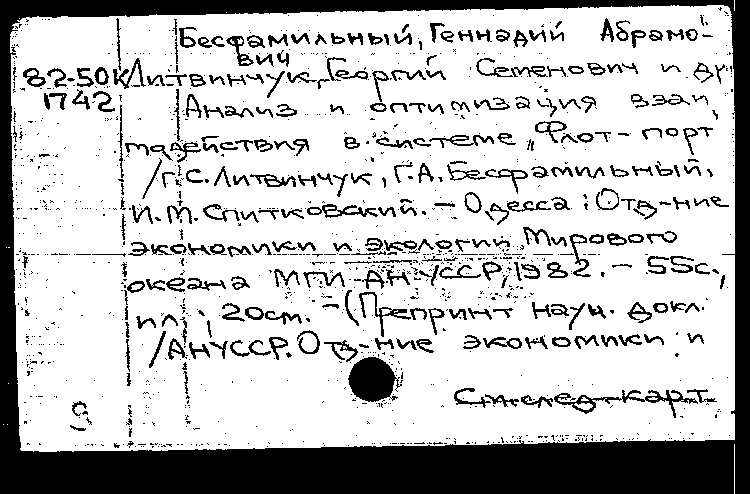 Бесфамильный, Геннадий Абрамо-
вич
82-50К Литвинчук, Георгий Семенович и др
1742 Анализ и оптимизация взаи
модействия в системе „Флот-порт
/Г.С.Литвинчук, Г.А.Бесфамильный,
И.М.Спитковский. – Одесса: Отд-ние
экономики и экологии Мирового
океана МГИ АН УССР, 1982. – 55с.,
ил.; 20см. – (Препринт науч. докл.
/АН УССР. Отд-ние экономики и
См. след. карт
9